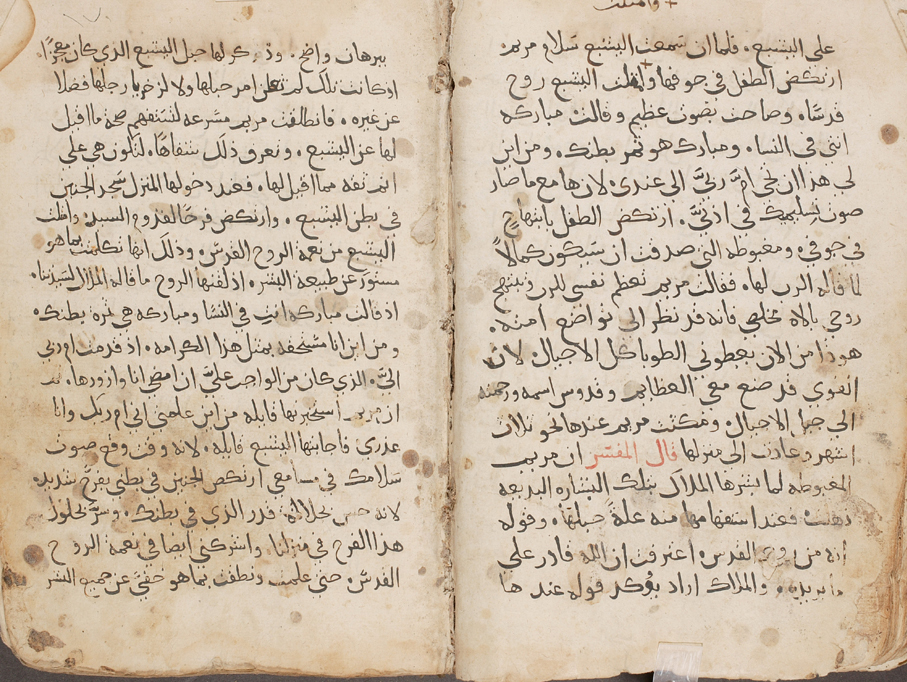 + وامتلت
على اليشبع. فلما ان سمعت اليشبع سلام مريم.
ارتكض الطفل في جوفها وامتلت اليشبع روح
قدسًا. وصاحت بصوت عظيم وقالت مباركه
انتي في النسا. ومبارك هو ثمر بطنك. ومن اين
لي هدا ان تجي ام ربيّ الى عندي. لان ها مع ما صار
صوت تسليمك في ادنيّ. ارتكض الطفل بابتهاج
في جوفي. ومغبوطه التي صدقت ان سيكون كمالاً
لما قاله الرب لها. فقالت مريم تعظم نفسي للرب وتبتهج
روحي بالاه مخلصي فانه قد نظر الى تواضع امته.
هودا من الان يعطوني الطوبا كل الاجيال. لان
القوي قد صنع معي العظايم وقدوس اسمه ورحمته
الى جيل الاجيال. ومكثت مريم عندها نحو تلات
اشهر وعادت الى منزلها قال المفسر ان مريم
المغبوطه لما بشرها الملاك بتلك البشاره البديعه
دهشت فعند استفهامها منه علة حبلها. وقوله
انه من روح القدس. اعترفت ان الله قادر على
ما يريده. والملاك اراد يوكد قوله عندها
ببرهان واضح. وذكر لها حبل اليشبع الذي كان معجزًا.
اد كانت تلك لم تعلن امر حبلها ولا لزخريا رجلها فضلا
عن غيره. فانطلقت مريم مسرعه لتستفهم صحة ما قيل
لها عن اليشبع. وتعرف ذلك شفاهًا. لتكون هي على
اتم ثقه مما قيل لها. فعند دخولها المنزل سجد الجنين
في بطن اليشبع. وارتكض فرحًا لقدوم السيد. وامتلت
اليشبع من نعمة الروح القدس. وذلك انها تكلمت بما هو
مستور عن طبيعة البشر. اذ لقنها الروح ما قاله الملاك لسيدتنا.
اذ قالت مباركه انتي في النسا ومباركه هي ثمرة بطنك.
ومن اين انا مستحقه بمثل هذا الكرامه. اذ قدمت ام ربي
اليّ. الذي كان من الواجب عليّ ان امضي انا وازورها.
ان مريم استخبرتها قايله من اين علمتي اني ام ربك وانا
عدري فاجابتها اليشبع قايله. لانه وقت وقع صوت
سلامك في مسامعي ارتكض الجنين في بطني بفرح شديد.
لانه حس بجلالة قدر الذي في بطنك. وسرّ بحلول
هذا الفرح في منزلنا. واشركني ايضا في نعمة الروح
القدس. حتى علمت ونطقت بما هو خفيّ عن جميع البشر